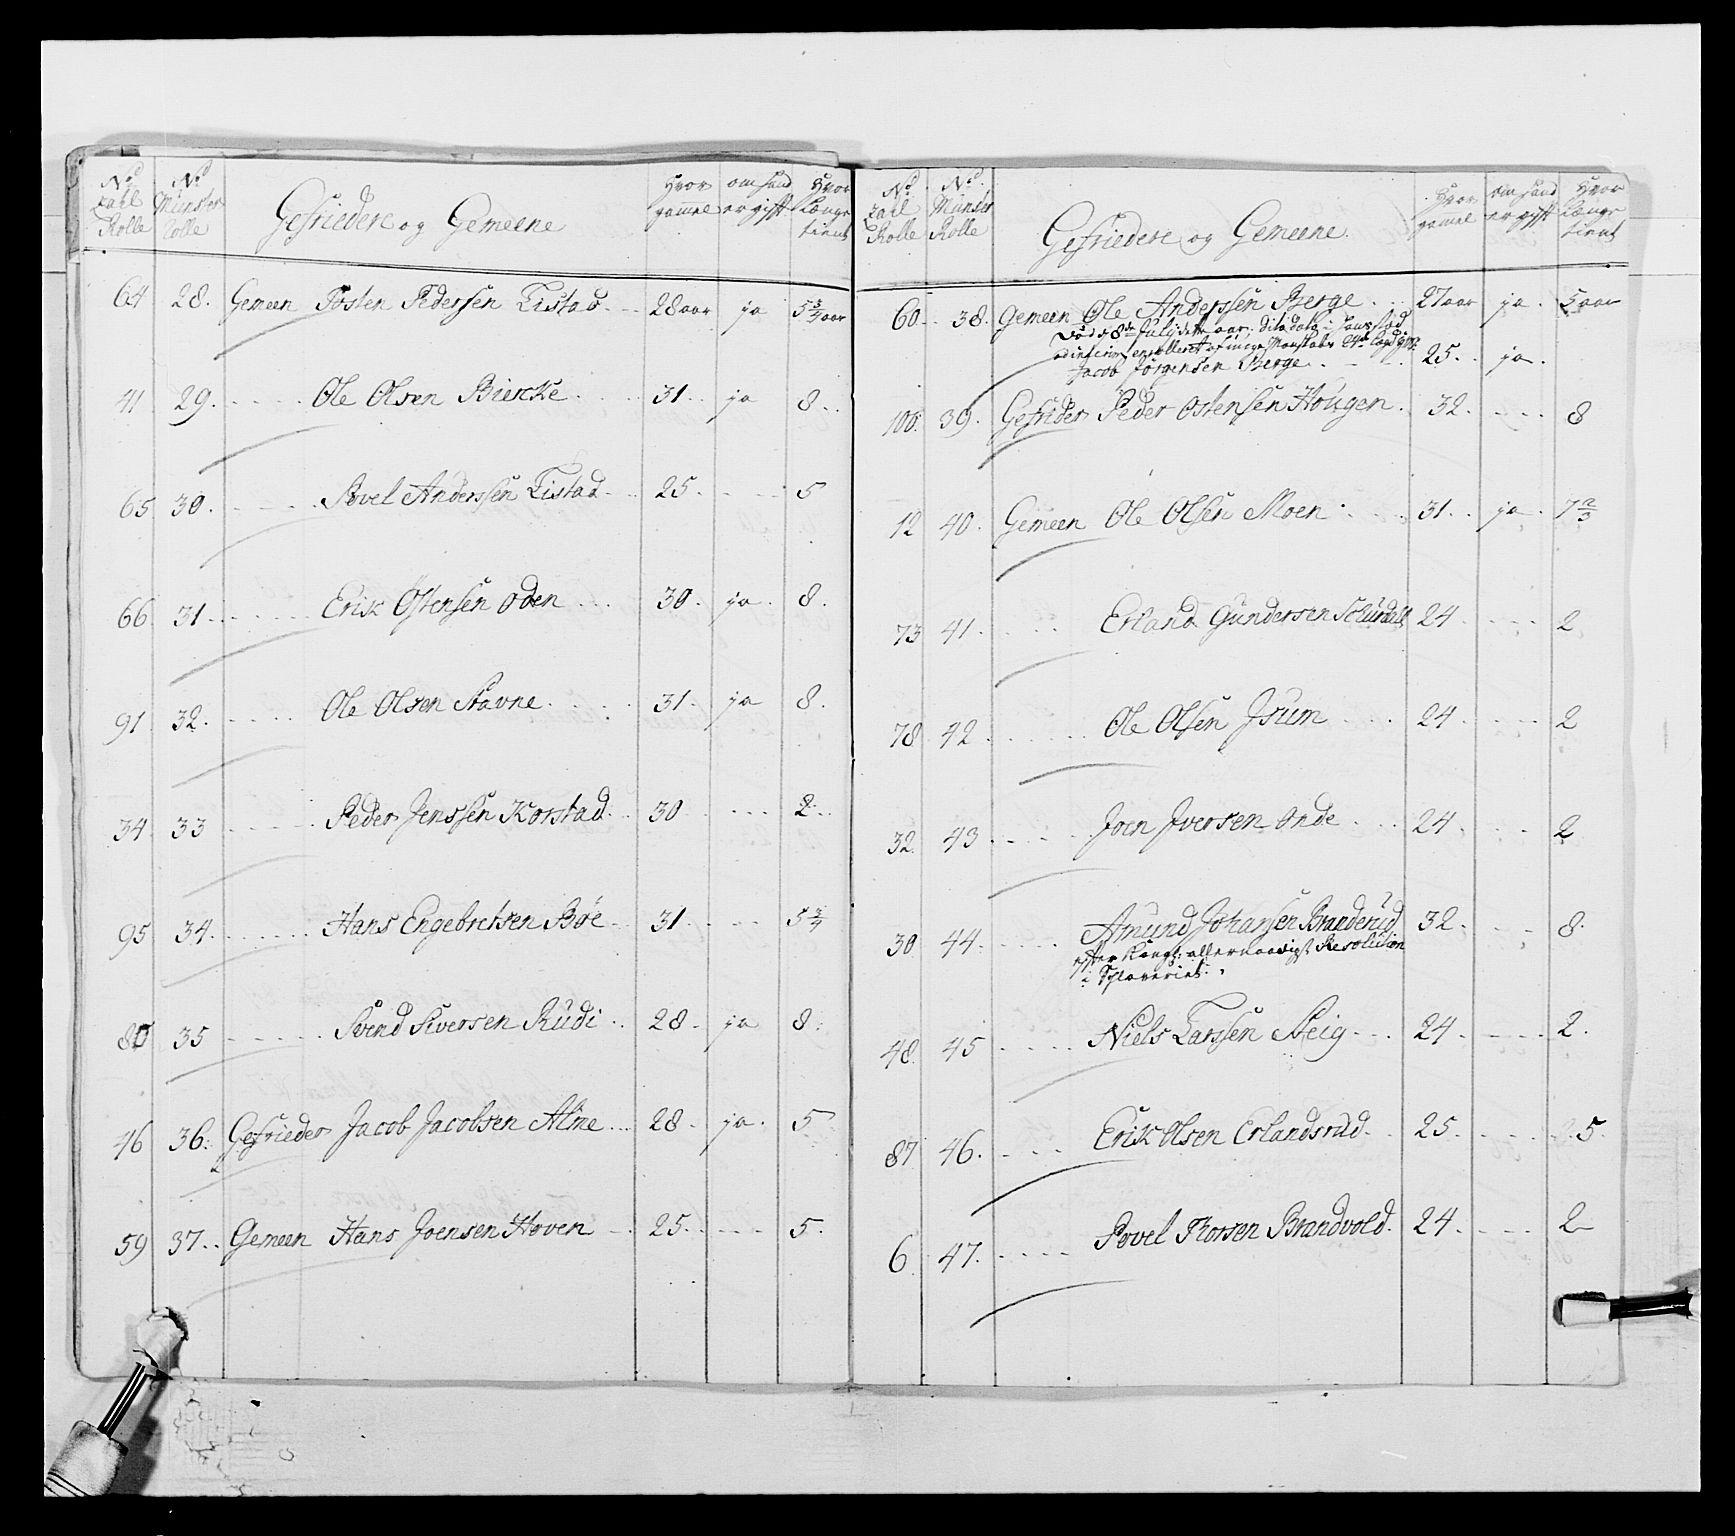 No Zahl Rolle | No Munster Rolle | Gefriedere og Gemeene | Hvor gammel | om hand er gift | Hvor længe tient
64 28. Gemeen Tosten Pedersen Listad 28 aar ja 5 3/4 aar
41 29. Ole Olsen Biercke 31 ja 8
65 30. Povel Anderssen Listad 25 5
66 31 Erik Ostensen Oden 30. ja. 8.
91 32. Ole Olsen Stavne 31. ja 8.
34 33 Peder Jenssen Korstad 30 2
95 34. Hans Engebretsen Bøe 31. 5 3/4
80 35 Svend Siversen Rudi 28. ja 8.
46 36. Gefrieder Jacob Jacobsen Alme 28. ja. 5
59 37. Gemeen Hans Joensen Hoven 25. 5.
No Zahl Rolle | No Munster Rolle | Gefriedere og Gemeene. | Hvor gammel | om hand er gift | Hvor længe tient
60. 38. Gemeen Ole Anderssen Berge 27 aar ja. 5 aar
Død 8de Julij dette aar. dito dato i hans stæd
enrolleret af unge Mandskab
Jacob Jørgensen Berge 25. ja.
100. 39. Gefrider Peder Ostensen Hougen 32. 8
12 40. Gemeen Ole Olsen Moen 31. ja. 7 2/3
73 41. Erland Gundersen 24 2
78 42 Ole Olsen Isum 24 2
32 43 Joen Iversen Onde 24 2
30 44. Amund Johansen Branderud 32 8.
efter Kongl: allernaadigst Resolution
i Slaveriet.
48 45 Niels Larssen Steig 24 2.
87 46. Erik Olsen Erlandsrud 25. 5.
6 47. Povel Thorsen Brandvold. 24. 2